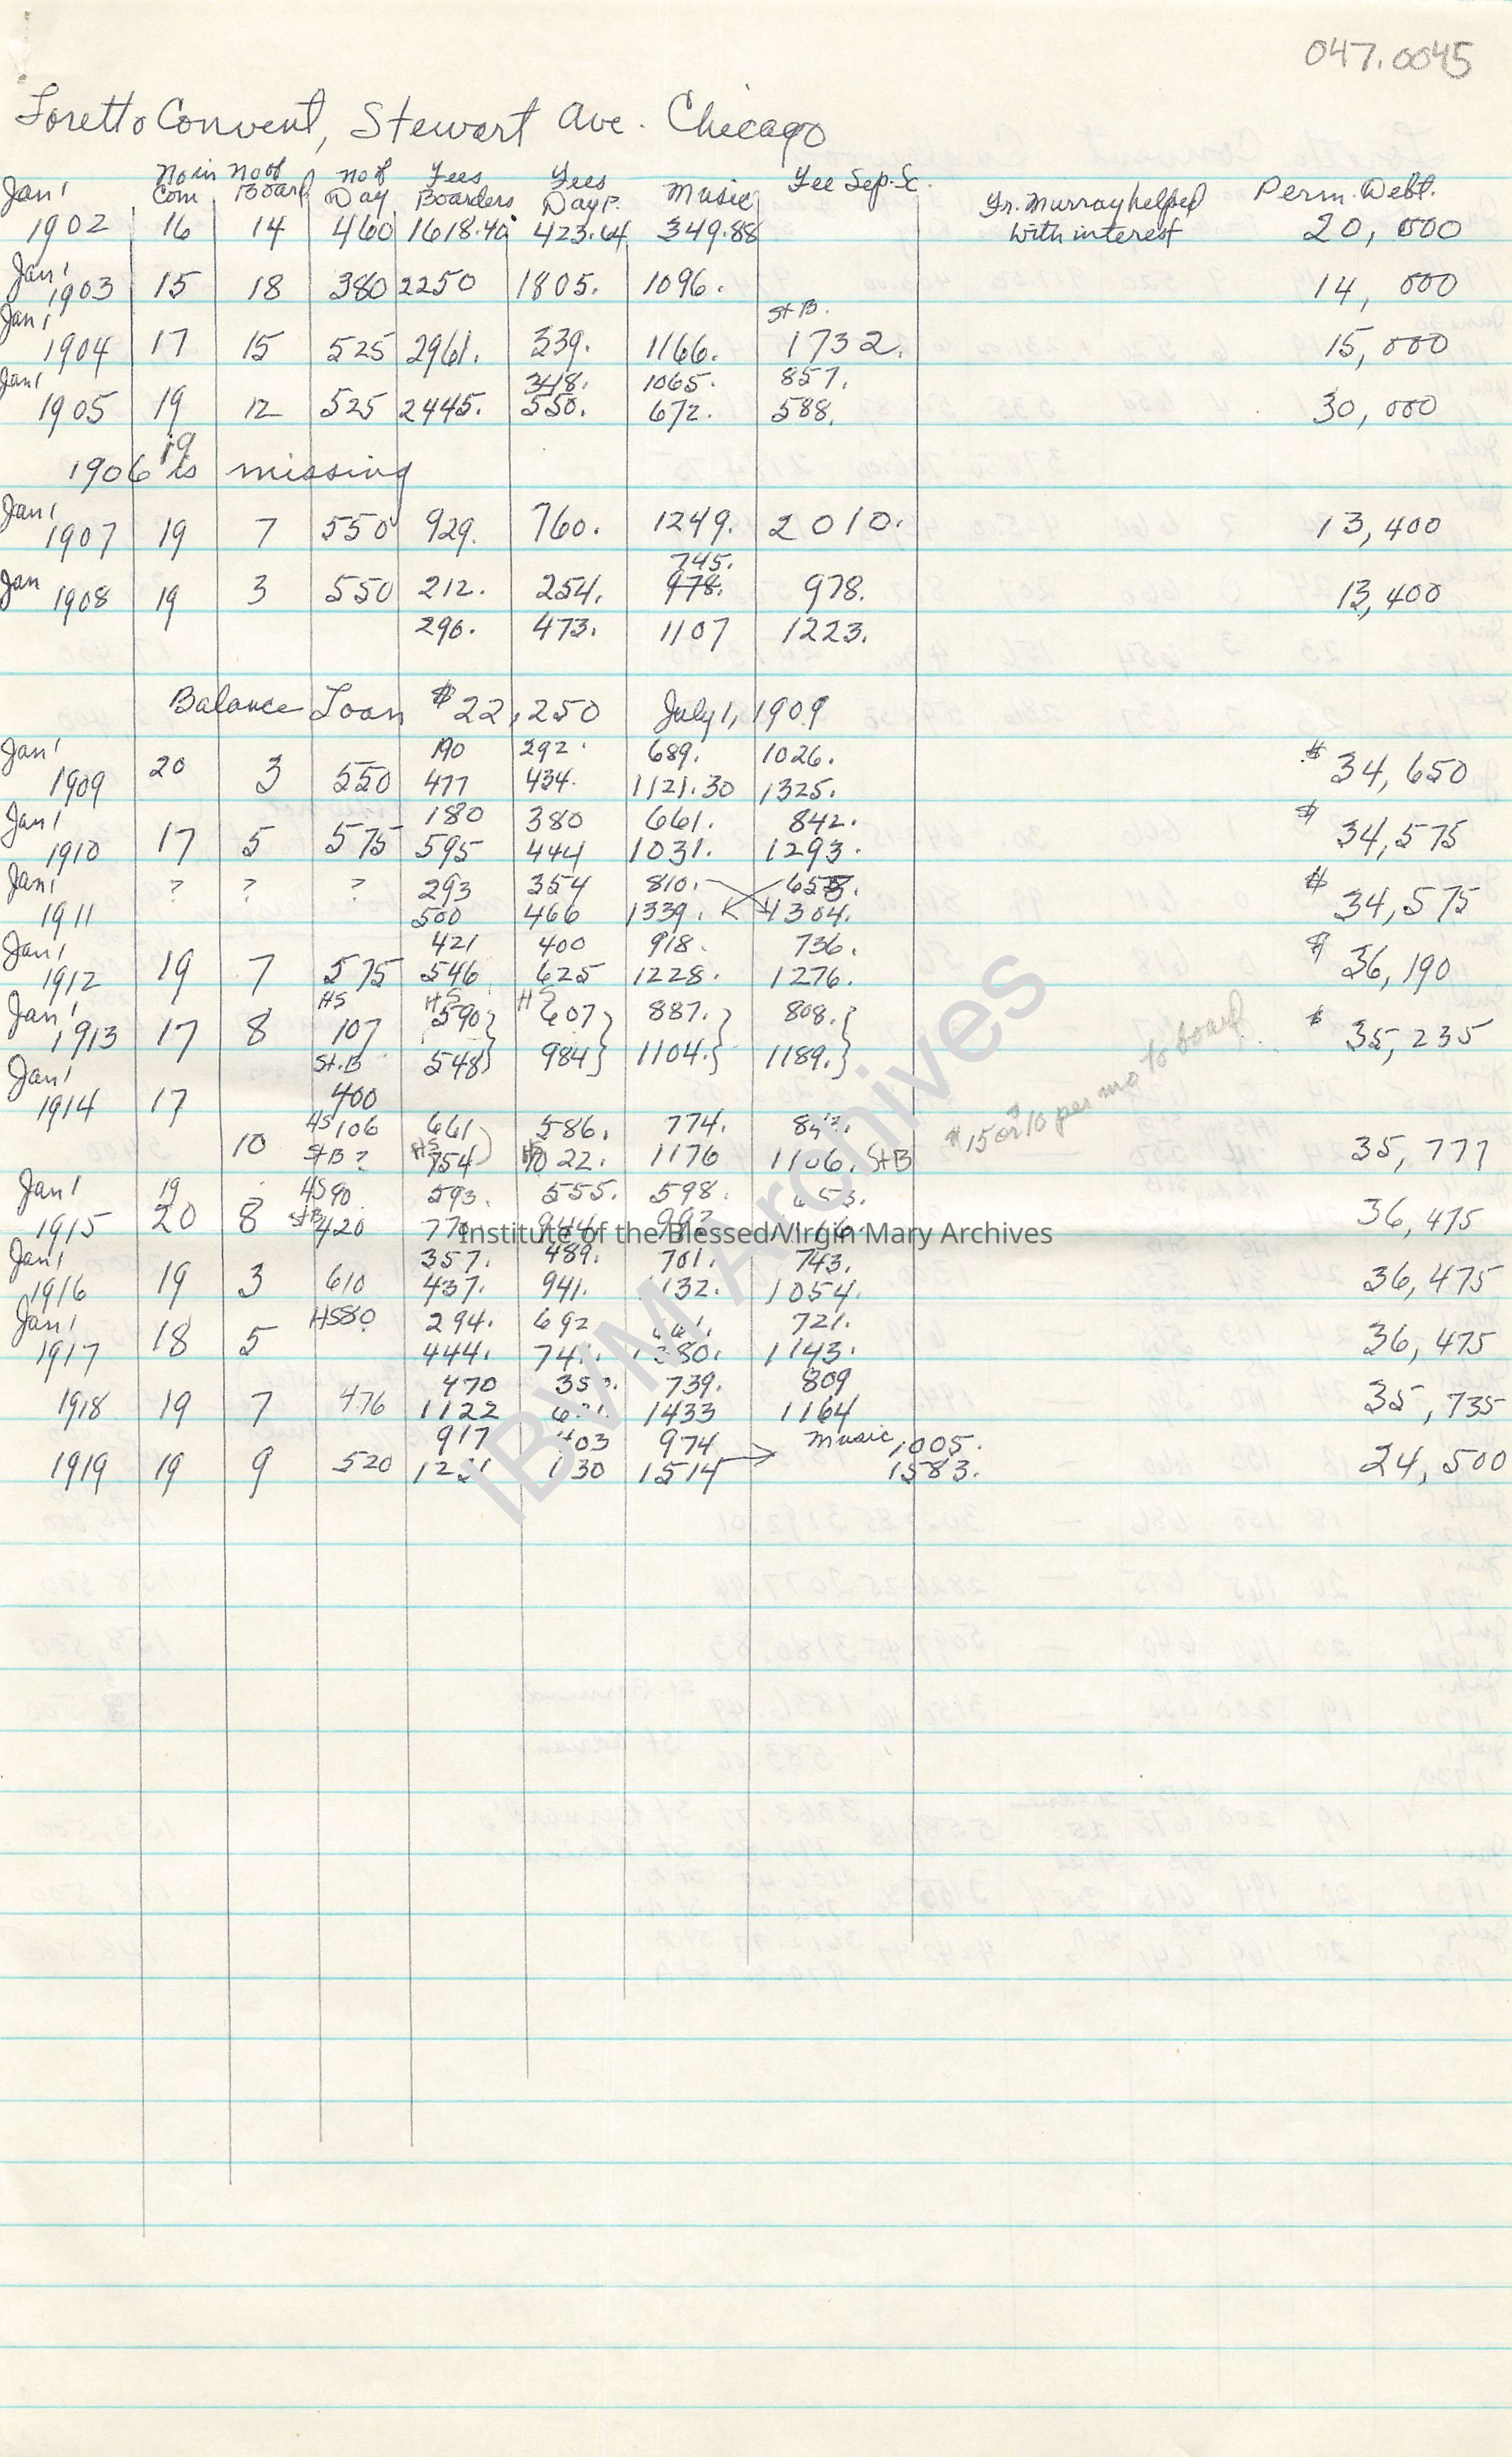 047.0045
Loretto Convent, Stewart Ave. Chicago
Jan 1 No in Com No of Board No of Day Fees Boarders Fees Day P. Music Fee Sep. Sc. Fr. Murray helped with interest Perm. Debt.
1902 16 14 460 1618.40 423.64 349.88 20,000
Jan 1
1903 15 18 380 2250 1805. 1096. 14,000
Jan 1 St B.
1904 17 15 525 2961. 339. 1166. 1732. 15,000
Jan 1 348. 1065. 857.
1905 19 12 525 2445. 550. 672. 588. 30,000
19
1906 is missing
Jan 1
1907 19 7 550 929. 760. 1249. 2010. 13,400
745.
Jan 1908 19 3 550 212. 254. 978. 978. 13,400
296. 473. 1107 1223.
Balance Loan $22,250 July 1, 1909
Jan 1 190 292. 689. 1026.
1909 20 3 550 477 434. 1121.30 1325. $34,650
Jan 1 180 380 661. 842.
1910 17 5 575 595 444 1031. 1293. $34,575
Jan 1 ? ? ? 293 354 810. 658.
1911 500 466 1339. 1304. $34,575
Jan 1 421 400 918. 736.
1912 19 7 575 546 625 1228. 1276. $36,190
Jan 1 HS HS 590 HS 607 887. 808.
1913 17 8 107 548 984 1104. 1189. $35,235
Jan 1 St.B
1914 17 400
HS 106 661 586. 774.
10 St B ? HS 754 HS 1022. 1176 1106. St B $15 or 10 per mo to board 35,777
Jan 1 19 HS 90 593. 555. 598. 653.
1915 20 8 St B 420 36,475
Institute of the Blessed Virgin Mary Archives
Jan 1 357. 489. 701. 743.
1916 19 3 610 437. 941. 1132. 1054. 36,475
Jan 1 HS80 294. 692 721.
1917 18 5 444. 1380. 1143. 36,475
470 739. 809
1918 19 7 476 1122 1433 1164 35,735
917 403 974 Music 1005.
1919 19 9 520 1514 1583. 24,500
IBVM Archives